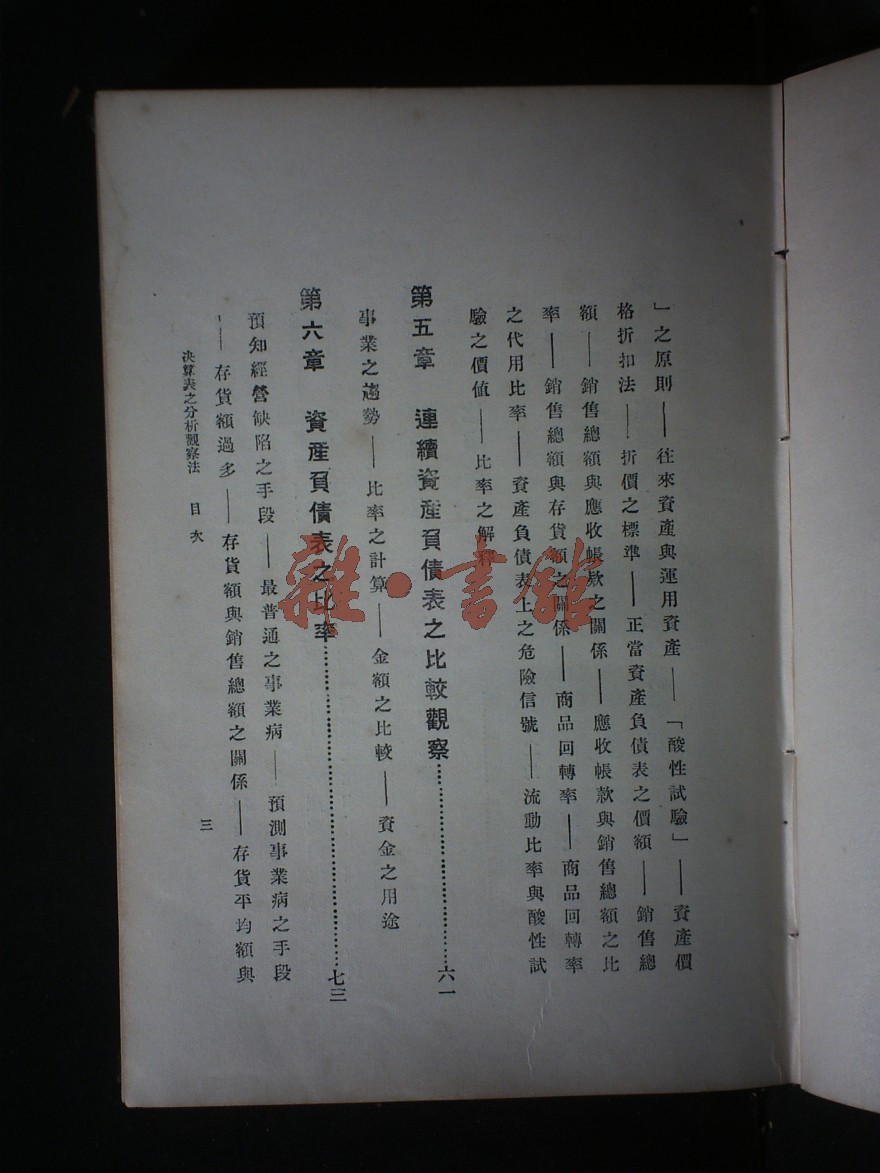 」之原則——往來資產與運用資產——「酸性試驗」——資產價
格折扣法——折價之標準——正當資產負債表之價額——銷售總
額——銷售總額與應收帳款之關係——應收帳款與銷售總額之比
率——銷售總額與存貨額之關係——商品回轉率——商品回轉率
之代用比率——資產負債表上之危險信號——流動比率與酸性試
驗之價值——比率之解釋
第五章 連續資產負債表之比較觀察……………………六一
事業之趨勢——比率之計算——金額之比較——資金之用途
第六章 資產負債表之比率……………………七三
預知經營缺陷之手段——最普通之事業病——預測事業病之手段
——存貨額過多——存貨額與銷售總額之關係——存貨平均額與
決算表之分析觀察法 目次
三
雜·書館